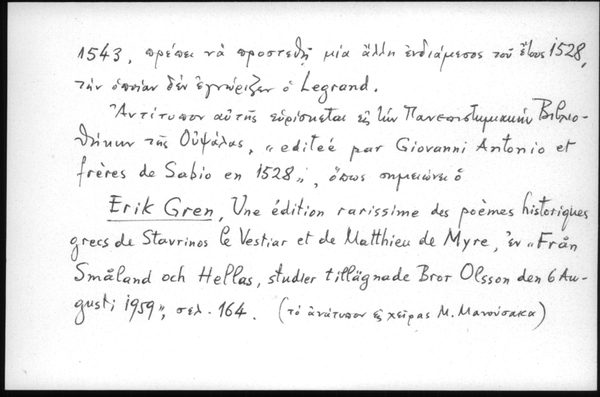 1543, πρέπει νὰ προστεθῇ μία ἄλλη ἐνδιάμεσος τοῦ ἔτους 1528,
τὴν ὁποίαν δὲν ἐγνώριζεν ὁ Legrand.
Ἀντίτυπον αὐτῆς εὑρίσκεται εἰς τὴν Πανεπιστημιακὴν Βιβλιο-
θήκην τῆς Οὐψάλας, „editeé par Giovanni Antonio et
frères de Sabio en 1528„, ὅπως σημειώνει ὁ
Erik Gren, Une édition rarissime des poèmes historiques
grecs de Stavrinos le Vestiar et de Matthieu de Myre, ἐν „Från
Småland och Hellas, studier tillägnade Bror Olsson den 6 Au-
gusti 1959„, σελ. 164. (τὸ ἀνάτυπον εἰς χεῖρας Μ. Μανούσακα)